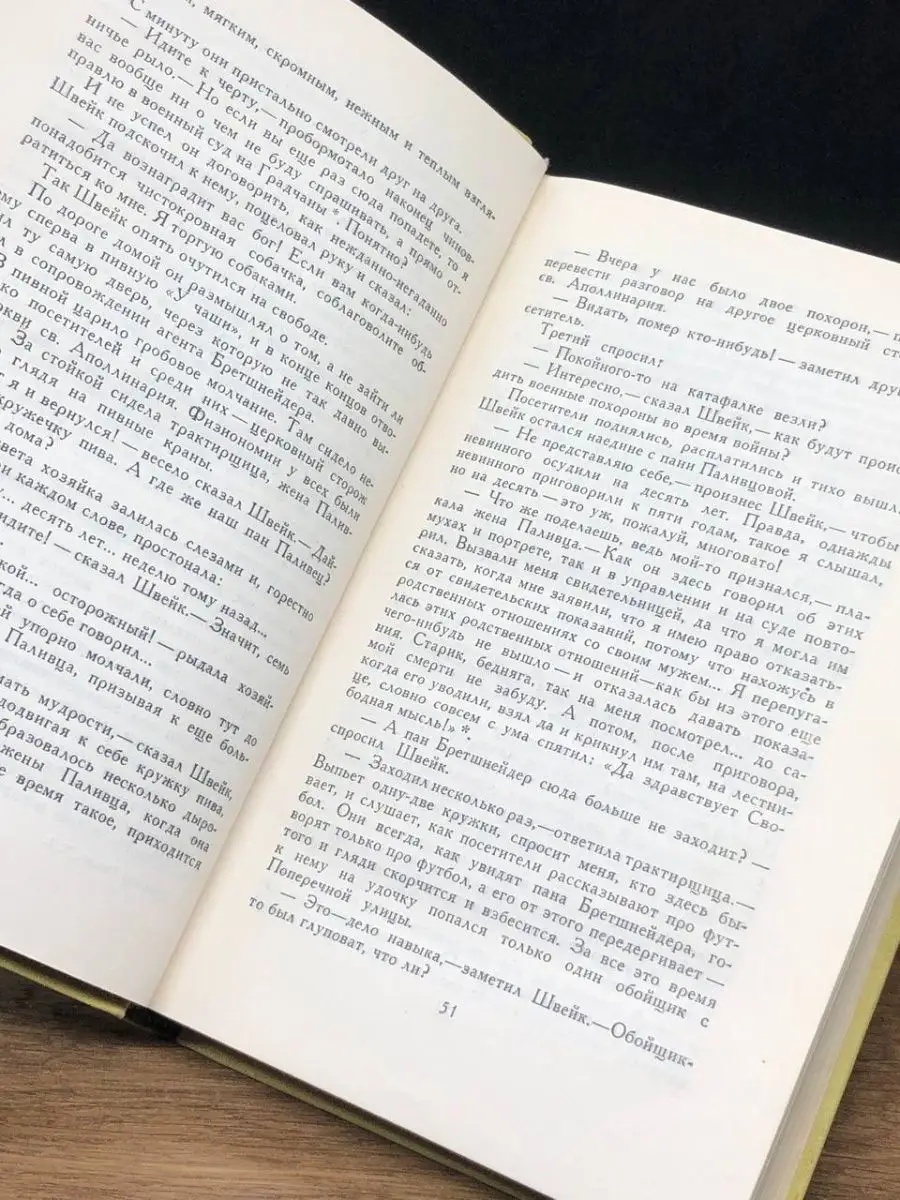 м, мягким, скромным, нежным и теплым взгля-
С минуту они пристально смотрели друг на друга.
— Идите к черту,—пробормотало наконец чинов-
ничье рыло.— Но если вы еще раз сюда попадете, то я
вас вообще ни о чем не буду спрашивать, а прямо от-
правлю в военный суд на Градчаны *. Понятно?
И не успел он договорить, как нежданно-негаданно
Швейк подскочил к нему, поцеловал руку и сказал:
— Да вознаградит вас бог! Если вам когда-нибудь
понадобится чистокровная собачка, соблаговолите об-
ратиться ко мне. Я торгую собаками.
Так Швейк опять очутился на свободе.
По дороге домой он размышлял о том, а не зайти ли
ему сперва в пивную «У чаши», и в конце концов отво-
рил ту самую дверь, через которую не так давно вы-
в сопровождении агента Бретшнейдера.
В пивной царило гробовое молчание. Там сидело не-
ко посетителей и среди них — церковный сторож
ркви св. Аполлинария. Физиономии у всех были
За стойкой сидела трактирщица, жена Палив-
глядя на пивные краны.
т я и вернулся!— весело сказал Швейк.— Дай-
кружечку пива. А где же наш пан Паливец?
дома?
вета хозяйка залилась слезами и, горестно
и каждом слове, простонала:
... десять лет... неделю тому назад...
идите! — сказал Швейк.— Значит, семь
кой... осторожный! — рыдала хозяй-
гда о себе говорил...
й упорно молчали, словно тут
Паливца, призывая к еще боль-
мать мудрости,— сказал Швейк,
додвигая к себе кружку пива,
бразовалось несколько дыро-
жены Паливца, когда она
е время такое, приходится
— Вчера у нас было двое похорон,— п
перевести разговор на другое церковный сто
св. Аполлинария.
— Видать, помер кто-нибудь! — заметил друг
сетитель.
Третий спросил:
— Покойного-то на катафалке везли?
— Интересно,— сказал Швейк,— как будут проис
дить военные похороны во время войны?
Посетители поднялись, расплатились и тихо вышл
Швейк остался наедине с пани Паливцовой.
— Не представляю себе,— произнес Швейк,— чтобы
невинного осудили на десять лет. Правда, однажды
невинного приговорили к пяти годам, такое я слышал,
но на десять — это уж, пожалуй, многовато!
— Что же поделаешь, ведь мой-то признался,— пла-
кала жена Паливца.— Как он здесь говорил об этих
мухах и портрете, так и в управлении и на суде повто-
рил. Вызвали меня свидетельницей, да что я могла им
сказать, когда мне заявили, что я имею право отказать-
ся от свидетельских показаний, потому что нахожусь в
родственных отношениях со своим мужем... Я перепуга-
лась этих родственных отношений — как бы из этого еще
чего-нибудь не вышло — и отказалась давать показа-
ния. Старик, бедняга, так на меня посмотрел... до са-
мой смерти не забуду. А потом, после приговора,
когда его уводили, взял да и крикнул им там, на лестни-
це, словно совсем с ума спятил: «Да здравствует Сво-
бодная мысль!» *.
— А пан Бретшнейдер сюда больше не заходит? —
спросил Швейк.
— Заходил несколько раз,— ответила трактирщица.—
Выпьет одну-две кружки, спросит меня, кто здесь бы-
вает, и слушает, как посетители рассказывают про фут-
бол. Они всегда, как увидят пана Бретшнейдера, го-
ворят только про футбол, а его от этого передергивает —
того и гляди скорчится и взбесится. За все это время
к нему на удочку попался только один обойщик с
Поперечной улицы.
— Это — дело навыка,— заметил Швейк.— Обойщик-
то был глуповат, что ли?
51